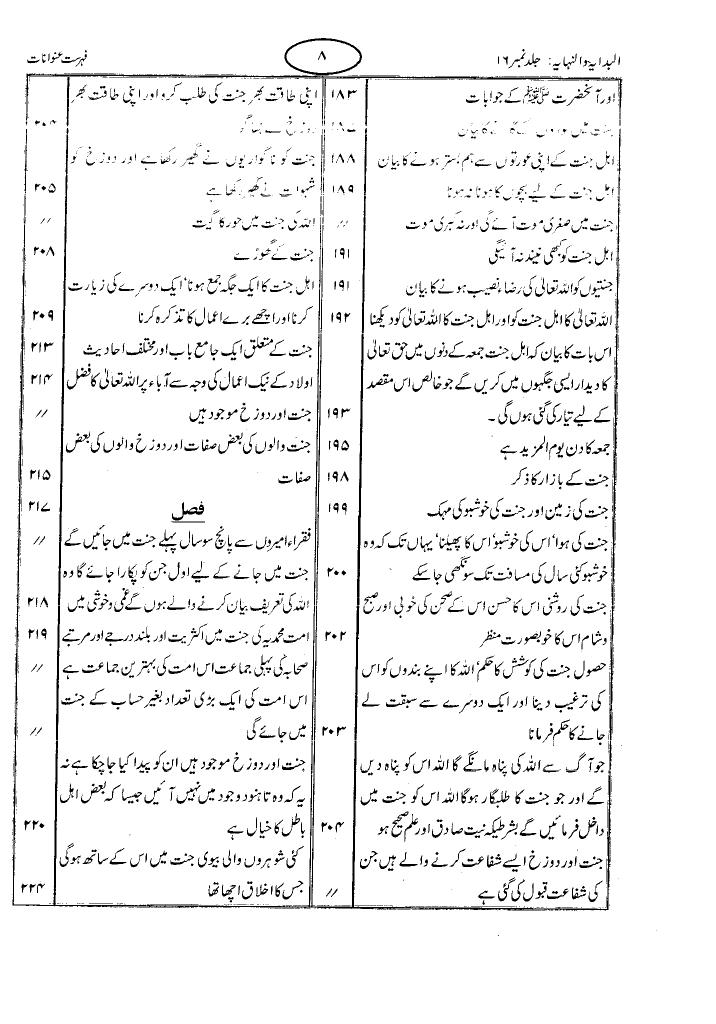 البدایۃ والنہایہ: جلد نمبر ۱۶
۸
فہرست عنوانات
اور آنحضرت ﷺ کے جوابات ۱۸۳
جنت میں کا بیان
اہل جنت کے اپنی عورتوں سے ہم بستر ہونے کا بیان ۱۸۸
اہل جنت کے لیے بچوں کا ہونا نہ ہونا ۱۸۹
جنت میں صغریٰ موت آئے گی اور نہ کبریٰ موت //
اہل جنت کو کبھی نیند نہ آئیگی ۱۹۱
جنتیوں کو اللہ تعالیٰ کی رضاء نصیب ہونے کا بیان ۱۹۱
اللہ تعالیٰ کا اہل جنت کو اور اہل جنت کا اللہ تعالیٰ کو دیکھنا ۱۹۲
اس بات کا بیان کہ اہل جنت جمعہ کے دنوں میں حق تعالیٰ
کا دیدار ایسی جگہوں میں کریں گے جو خالص اس مقصد
کے لیے تیار کی گئی ہوں گی۔ ۱۹۳
جمعہ کا دن یوم المزید ہے ۱۹۵
جنت کے بازار کا ذکر ۱۹۸
جنت کی زمین اور جنت کی خوشبو کی مہک ۱۹۹
جنت کی ہوا‘ اس کی خوشبو‘ اس کا پھیلنا‘ یہاں تک کہ وہ
خوشبو کئی سال کی مسافت تک سونگھی جا سکے ۲۰۰
جنت کی روشنی اس کا حسن اس کے صحن کی خوبی اور صبح
وشام اس کا خوبصورت منظر ۲۰۲
حصول جنت کی کوشش کا حکم‘ اللہ کا اپنے بندوں کو اس
کی ترغیب دینا اور ایک دوسرے سے سبقت لے
جانے کا حکم فرمانا ۲۰۳
جو آگ سے اللہ کی پناہ مانگے گا اللہ اس کو پناہ دیں
گے اور جو جنت کا طلبگار ہوگا اللہ اس کو جنت میں
داخل فرمائیں گے بشرطیکہ نیت صادق اور علم صحیح ہو ۲۰۴
جنت اور دوزخ ایسے شفاعت کرنے والے ہیں جن
کی شفاعت قبول کی گئی ہے //
اپنی طاقت بھر جنت کی طلب کرو اور اپنی طاقت بھر
دوزخ سے بھاگو ۲۰۴
جنت کو ناگواریوں نے گھیر رکھا ہے اور دوزخ کو
شہوات نے گھیر رکھا ہے ۲۰۵
اللہ کی جنت میں حور کا گیت //
جنت کے گھوڑے ۲۰۸
اہل جنت کا ایک جگہ جمع ہونا‘ ایک دوسرے کی زیارت
کرنا اور اچھے برے اعمال کا تذکرہ کرنا ۲۰۹
جنت کے متعلق ایک جامع باب اور مختلف احادیث ۲۱۳
اولاد کے نیک اعمال کی وجہ سے آباء پر اللہ تعالیٰ کا فضل ۲۱۴
جنت اور دوزخ موجود ہیں //
جنت والوں کی بعض صفات اور دوزخ والوں کی بعض
صفات ۲۱۵
فصل ۲۱۷
فقراء امیروں سے پانچ سو سال پہلے جنت میں جائیں گے //
جنت میں جانے کے لیے اول جن کو پکارا جائے گا وہ
اللہ کی تعریف بیان کرنے والے ہوں گے غمی و خوشی میں ۲۱۸
امت محمدیہ کی جنت میں اکثریت اور بلند درجے اور مرتبے ۲۱۹
صحابہ کی پہلی جماعت اس امت کی بہترین جماعت ہے //
اس امت کی ایک بڑی تعداد بغیر حساب کے جنت
میں جائے گی //
جنت اور دوزخ موجود ہیں ان کو پیدا کیا جا چکا ہے نہ
یہ کہ وہ تاہنوز وجود میں نہیں آئیں جیسا کہ بعض اہل
باطل کا خیال ہے ۲۲۰
کئی شوہروں والی بیوی جنت میں اس کے ساتھ ہوگی
جس کا اخلاق اچھا تھا ۲۲۴